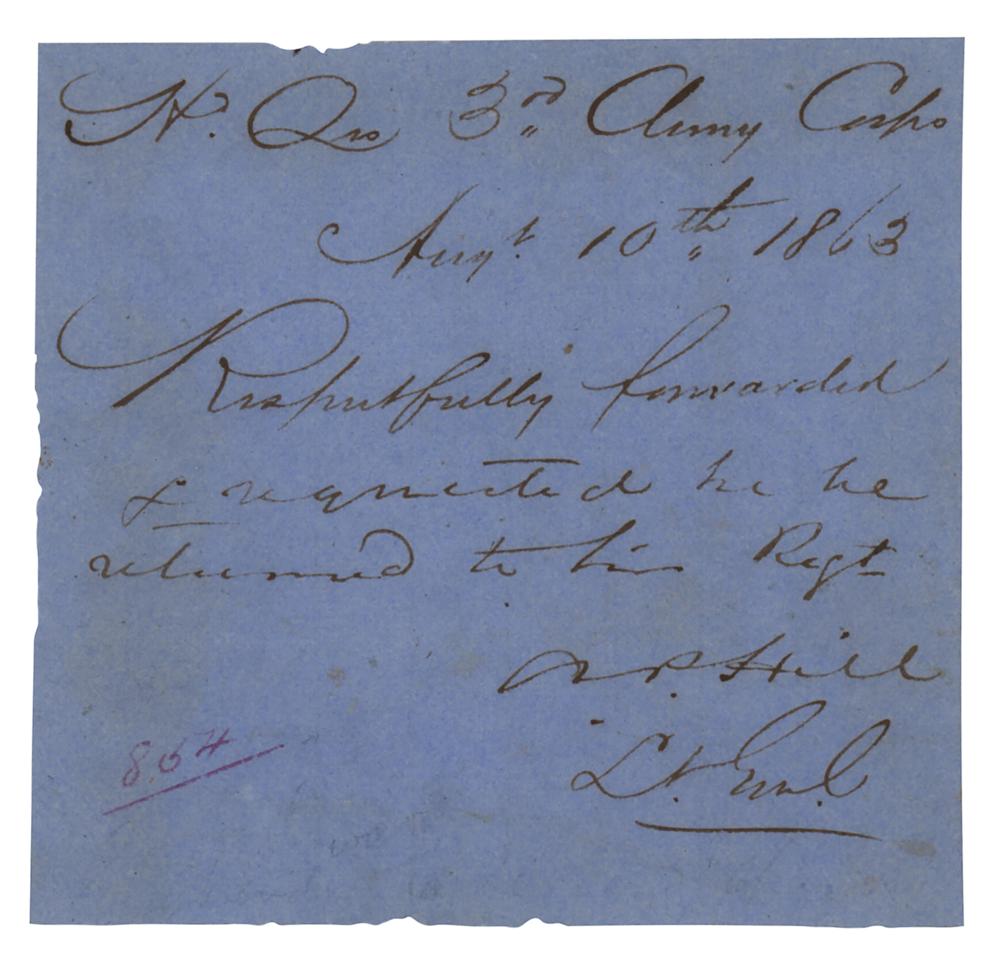 Hd. Qrs 3rd Army Corps
Augt. 10th 1863
Respectfully forwarded
& requested he be
returned to his Regt
A.P. Hill
Lt. Genl.
864